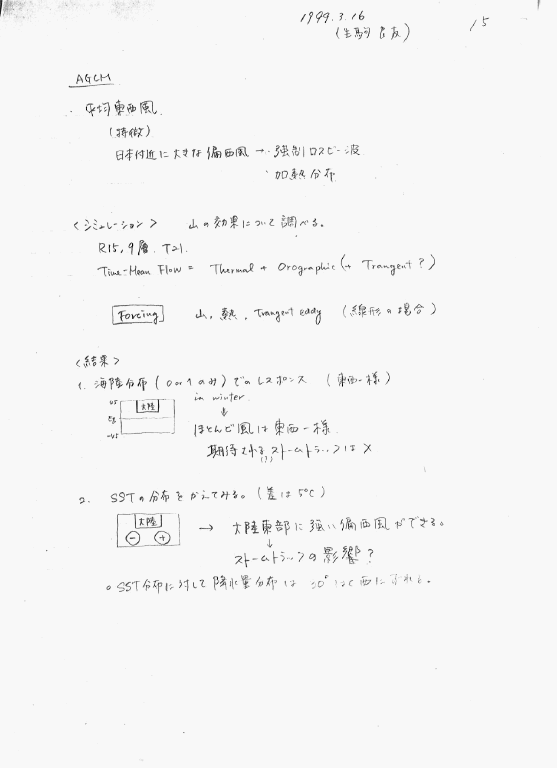 1999.3.16
15
AGCM
・平均東西風
(特徴)
日本付近に大きな偏西風 → 強制ロスビー波
加熱分布
<シミュレーション> 山の効果について調べる。
R15, 9層, T21.
Time-Mean Flow = Thermal + Orographic (+ Trangent?)
Forcing 山, 熱, Trangent eddy (線形の場合)
<結果>
1. 海陸分布 (0 or 1のみ) でのレスポンス (東西一様)
in winter
45
大陸
-45
↓
ほとんど風は東西一様
期待される ストームトラックは ×
2. SSTの分布をかえてみる。(差は5℃)
大陸
− +
→ 大陸東部に強い偏西風ができる。
↓
ストームトラックの影響?
○ SST分布に対して降水量分布は 西に